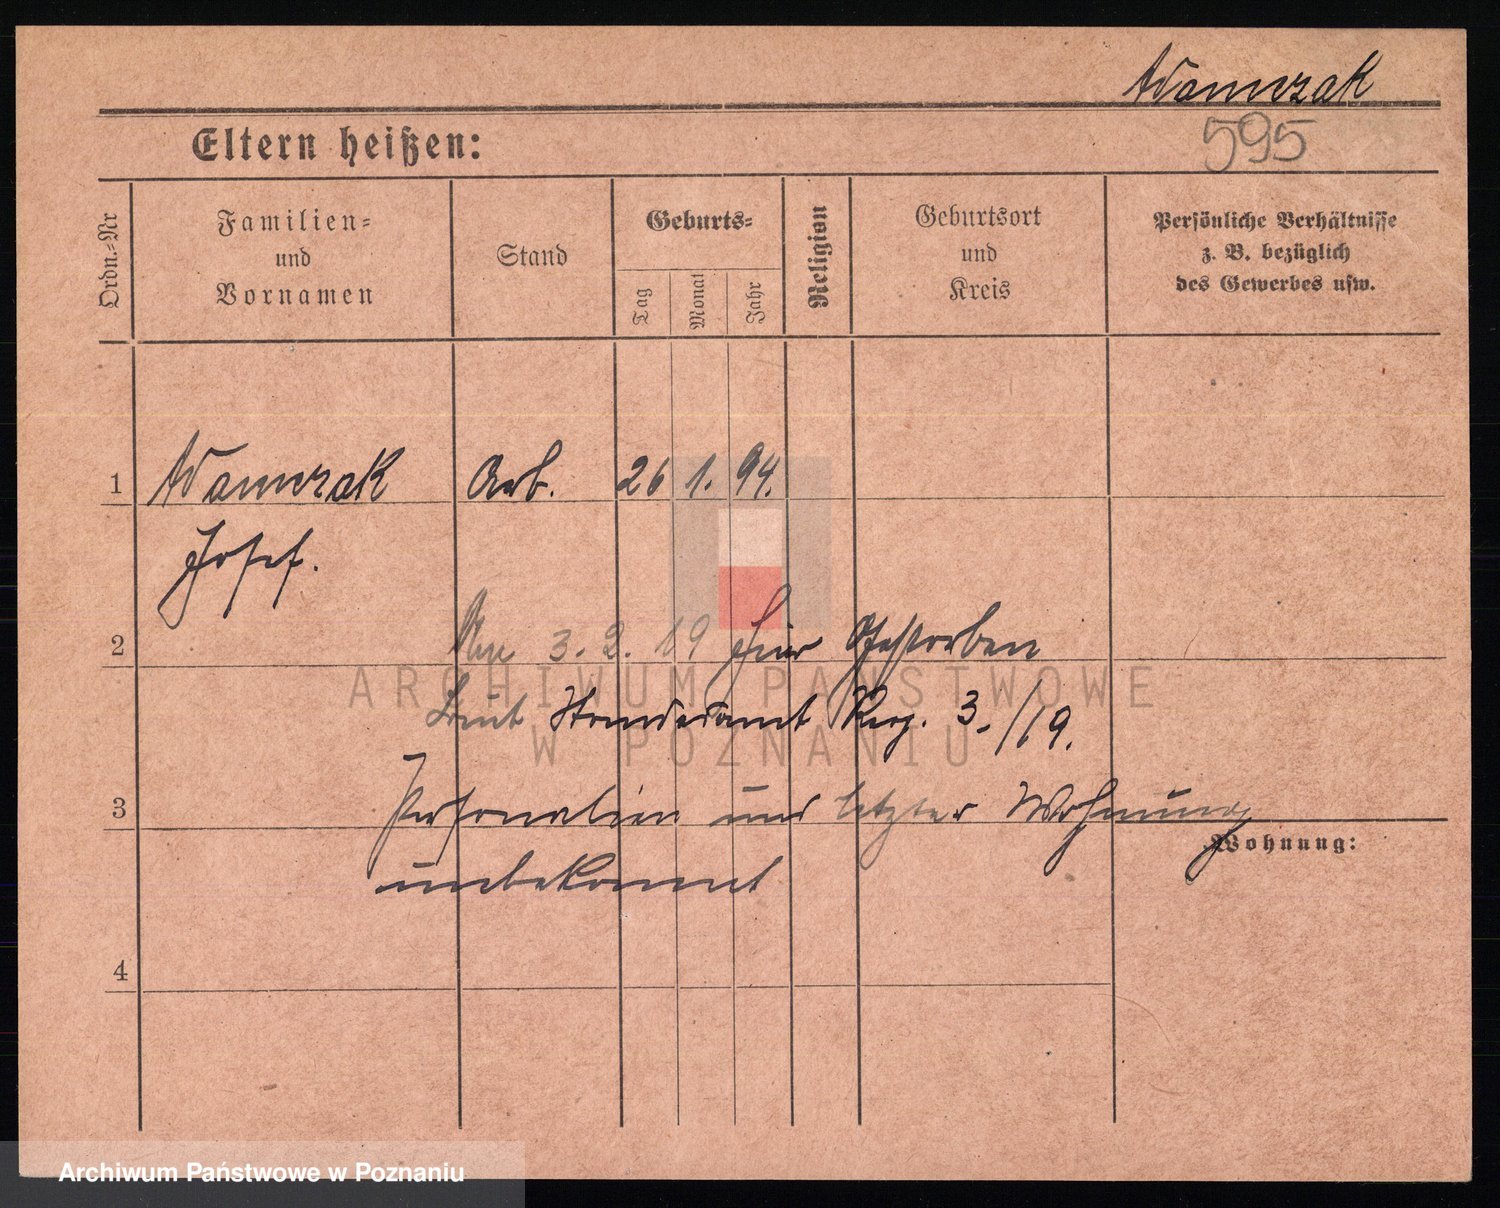 Adamczak
595
Eltern heißen:
Ordn.=Nr
Familien=
und
Vornamen
Stand
Geburts=
Tag
Monat
Jahr
Religion
Geburtsort
und
Kreis
Persönliche Verhältnisse
z. B. bezüglich
des Gewerbes usw.
1 Adamczak Arb. 26 1. 94.
Josef.
2 Am 3. 2. 19 hier Gestorben
Laut Standesamt Reg. 3./19.
3 Personalien und letzter Wohnung
Wohnung:
unbekannt
4
ARCHIWUM PAŃSTWOWE
W POZNANIU
Archiwum Państwowe w Poznaniu